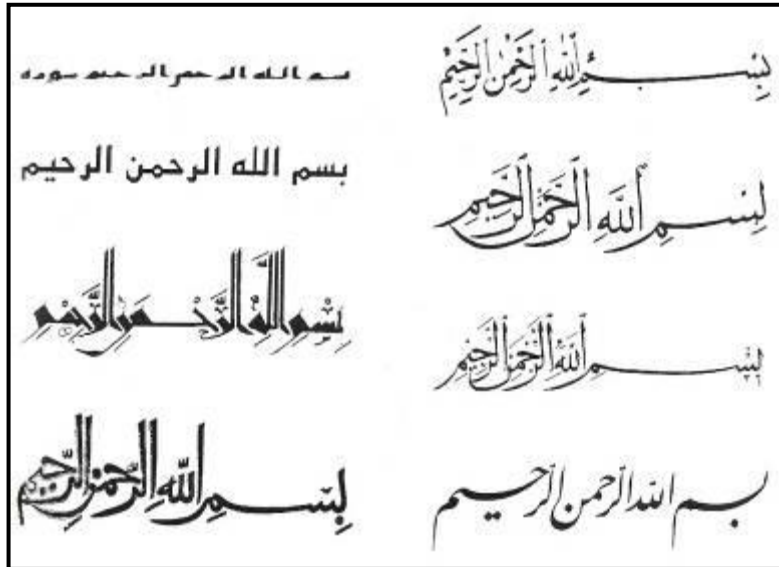 بسم الله الرحمن الرحيم
بسم الله الرحمن الرحيم
بِسْمِ اللَّهِ الرَّحْمَنِ الرَّحِيْمِ
بِسْمِ اللَّهِ الرَّحْمَنِ الرَّحِيمِ
بِسْمِ اللَّهِ الرَّحْمٰنِ الرَّحِيْمِ
بِسْمِ اللَّهِ الرَّحْمَنِ الرَّحِيمِ
بِسْمِ اللَّهِ الرَّحْمَنِ الرَّحِيمِ
بسم الله الرحمن الرحيم